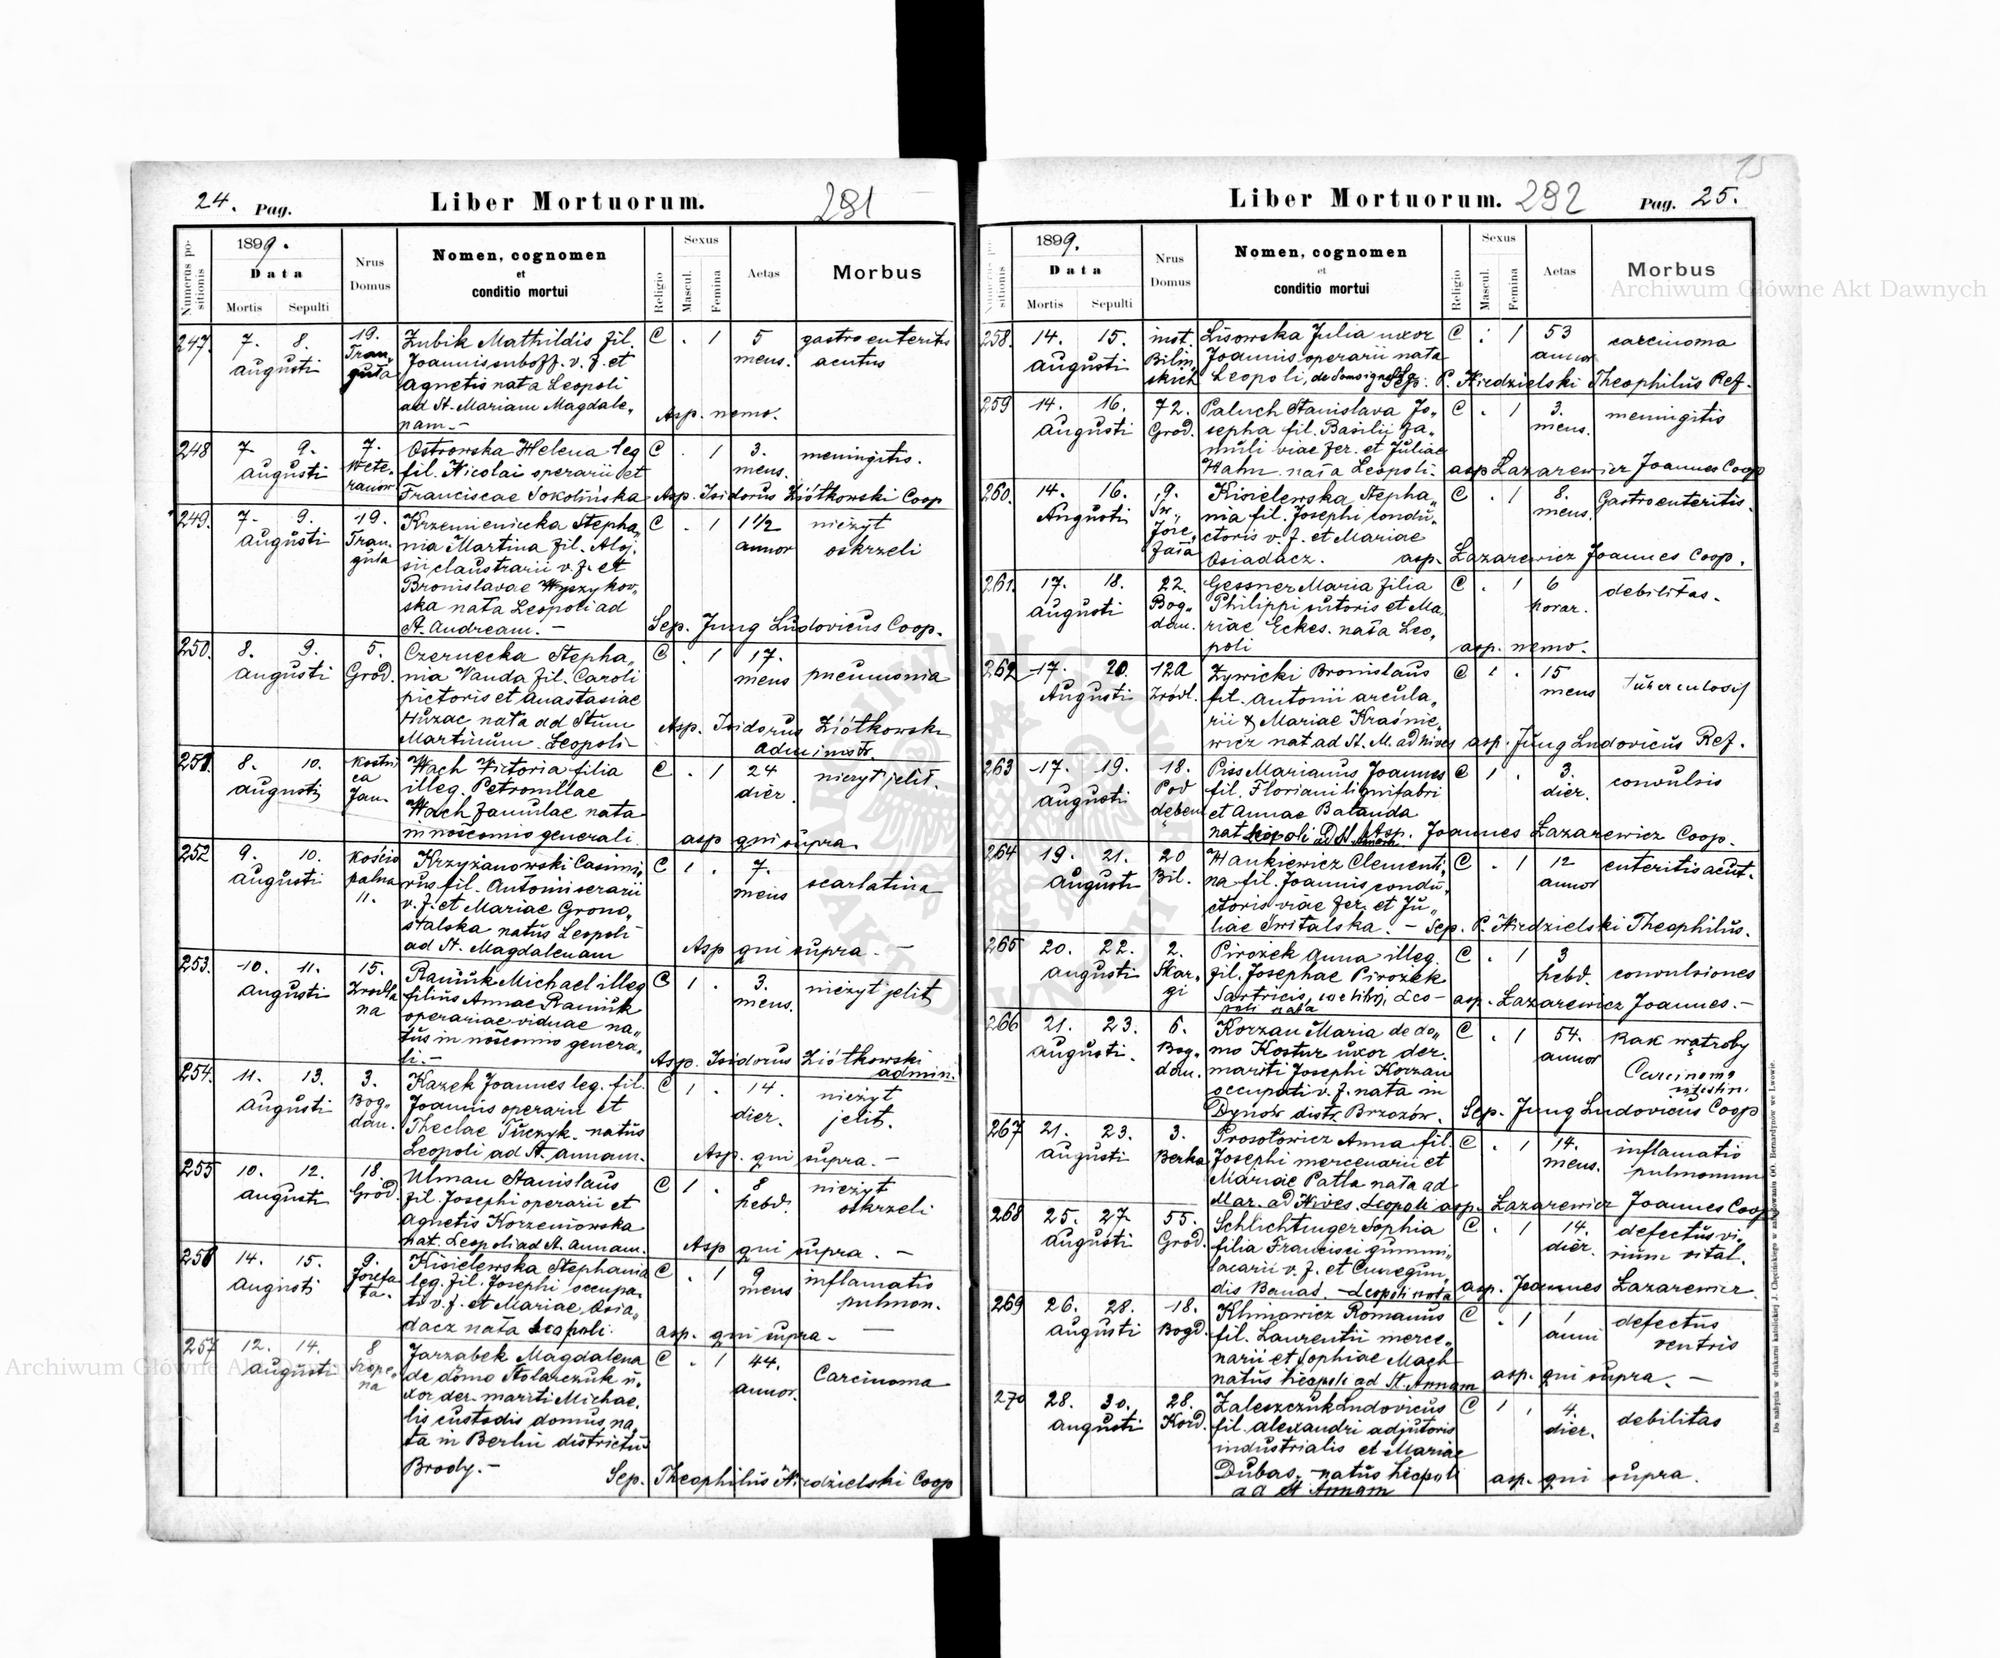 24. Pag. Liber Mortuorum. 281
Numerus positionis
1899.
Data
Mortis Sepulti
Nrus Domus
Nomen, cognomen
et
conditio mortui
Religio
Sexus
Mascul. Femina
Aetas
Morbus
247. 7. 8. augusti 19. Trauguta
Zubik Mathildis fil. C . 1 5 mens. gastroenteritis acutus
Joannis suboff. v. f. et
Agnetis nata Leopoli
ad St. Mariam Magdale„
nam.- Asp. nemo.
248 7 9. augusti 7. Weteranow
Ostrowska Helena leg C . 1 3. mens. meningitis.
fil. Nicolai operarii et
Franciscae Sokolińska Asp. Isidorus Ziółkowski Coop
249. 7. 9. augusti 19. Trauguta
Krzemieniecka Stepha„ C . 1 1 1/2 annor nieżyt oskrzeli
nia Martina fil. Aloj.
sii claustrarii v. f. et
Bronislavae Wyszykow„
ska nata Leopoli ad
St. Andream.- Sep. Jung Ludovicus Coop.
250. 8. 9. augusti 5. Grod.
Czernecka Stepha„ C . 1 17. mens pneumonia
nia Vanda fil. Caroli
pictoris et Anastasiae
Huzac nata ad Stum
Martinum Leopoli- Asp. Isidorus Ziółkowski
administr.
251. 8. 10. augusti
Wach Victoria filia C . 1 24 dier nieżyt jelit.
illeg. Petronellae
Wach famulae nata
in nosocomio generali. asp qui supra
252 9. 10. augusti 11.
Krzyżanowski Casimi„ C 1 . 7. mens scarlatina
rus fil. Antonii serarii
v. f. et Mariae Grono„
stalska natus Leopoli
ad St. Magdalenam Asp qui supra -
253. 10. 11. augusti 15. Zrodlana
Raniuk Michael illeg C 1 . 3. mens. nieżyt jelit
filius Annae Raniuk
operariae viduae na„
tus in nosocomio genera„
li.- Asp. Isidorus Ziółkowski
admin.
254. 11. 13. augusti 3. Bogdan.
Kazek Joannes leg. fil. C 1 . 14. dier. nieżyt jelit.
Joannis operarii et
Theclae Tuczyk. natus
Leopoli ad St. Annam. Asp. qui supra.-
255 10. 12. augusti 18. Grod.
Ulman Stanislaus C 1 . 8 hebd. nieżyt oskrzeli
fil. Josephi operarii et
Agnetis Korzeniowska
nat. Leopoli ad St. Annam. Asp qui supra.-
256 14. 15. augusti 9. Jozefata.
Kisielewska Stephania C . 1 9 mens inflamatio pulmon.
leg. fil. Josephi occupa„
ti v. f. et Mariae Osia„
dacz nata Leopoli. asp. qui supra.-
257 12. 14. augusti 8
Jarzabek Magdalena C . 1 44. annor. Carcinoma
de domo Stolarczuk u„
xor der. mariti Michae„
lis custodis domus, na„
ta in Berlin districtus
Brody.- Sep. Theophilus Niedzielski Coop
15
Liber Mortuorum. 282 Pag. 25.
Numerus positionis
1899.
Data
Mortis Sepulti
Nrus Domus
Nomen, cognomen
et
conditio mortui
Religio
Sexus
Mascul. Femina
Aetas
Morbus
258. 14. 15. augusti inst. Bilinskich
Lisowska Julia uxor C . 1 53 annor carcinoma
Joannis operarii nata
Leopoli, Sep. P. Niedzielski Theophilus Ref.
259 14. 16. augusti 72. Grod.
Paluch Stanislava Jo„ C . 1 3. mens. meningitis
sepha fil. Basilii fa„
muli viae fer. et Juliae
Hahn nata Leopoli. asp Lazarewicz Joannes Coop
260. 14. 16. Augusti 9. Sw. Jozefata
Kisielewska Stepha„ C . 1 8. mens. Gastroenteritis.
nia fil. Josephi condu„
ctoris v. f. et Mariae
Osiadacz. asp. Lazarewicz Joannes Coop.
261. 17. 18. augusti 22. Bogdan.
Gessner Maria filia C . 1 6 horar. debilitas.
Philippi sutoris et Ma„
riae Eckes. nata Leo„
poli asp. nemo.
262 17. 20. Augusti 12a Zródl.
Zywicki Bronislaus C 1 . 15 mens Tuberculosis
fil. Antonii arcula„
rii & Mariae Kraśnie„
wicz nat ad St. M. ad Nives asp. Jung Ludovicus Ref.
263 17. 19. augusti 18. Pod dębem
Piss Marianus Joannes C 1 . 3. dier. convulsio
fil. Floriani lignifabri
et Annae Batanda
nat Leopoli ad St. Annam Asp. Joannes Lazarewicz Coop.
264 19. 21. augusti 20 Bil.
Hankiewicz Clementi„ C . 1 12 annor enteritis acut.
na fil. Joannis condu„
ctoris viae fer. et Ju„
liae Switalska.- Sep. P. Niedzielski Theophilus.
265 20. 22. augusti 2. Skargi
Pirożek Anna illeg. C . 1 3 hebd. convulsiones
fil. Josephae Pirożek
Sartricis, Leo- asp. Lazarewicz Joannes.-
poli nata
266 21. 23. augusti. 6. Bogdan.
Korzan Maria de do„ C . 1 54. annor Rak wątroby
mo Kostur uxor der. Carcinoma
mariti Josephi Korzan intestin.
occupati v. f. nata in
Dynów distr. Brzozów. Sep. Jung Ludovicus Coop
267 21. 23. augusti 3. Berka
Prosołowicz Anna fil. C . 1 14. mens. inflamatio pulmonum
Josephi mercenarii et
Mariae Patla nata ad
Mar. ad Nives. Leopoli asp. Lazarewicz Joannes Coop
268 25. 27. augusti 55. Grod.
Schlichtinger Sophia C . 1 14. dier. defectus vi„
filia Francisci gummi„ rium vital.
lacarii v. f. et Cunegun„
dis Banaś.- Leopoli nata asp. Joannes Lazarewicz.
269 26. 28. augusti 18. Bogd.
Klimowicz Romanus C . 1 1 anni defectus ventris
fil. Laurentii merce„
narii et Sophiae Mach
natus Leopoli ad St. Annam asp. qui supra.-
270 28. 30. augusti 28. Kord.
Zaleszczuk Ludovicus C 1 . 4. dier. debilitas
fil. Alexandri adjutoris
industrialis et Mariae
Dubas.- natus Leopoli asp. qui supra.
ad St Annam
Do nabycia w drukarni katolickiej J. Chęcińskiego w zabudowaniu OO. Bernardynów we Lwowie.
Archiwum Główne Akt Dawnych
Archiwum Główne Akt Dawnych